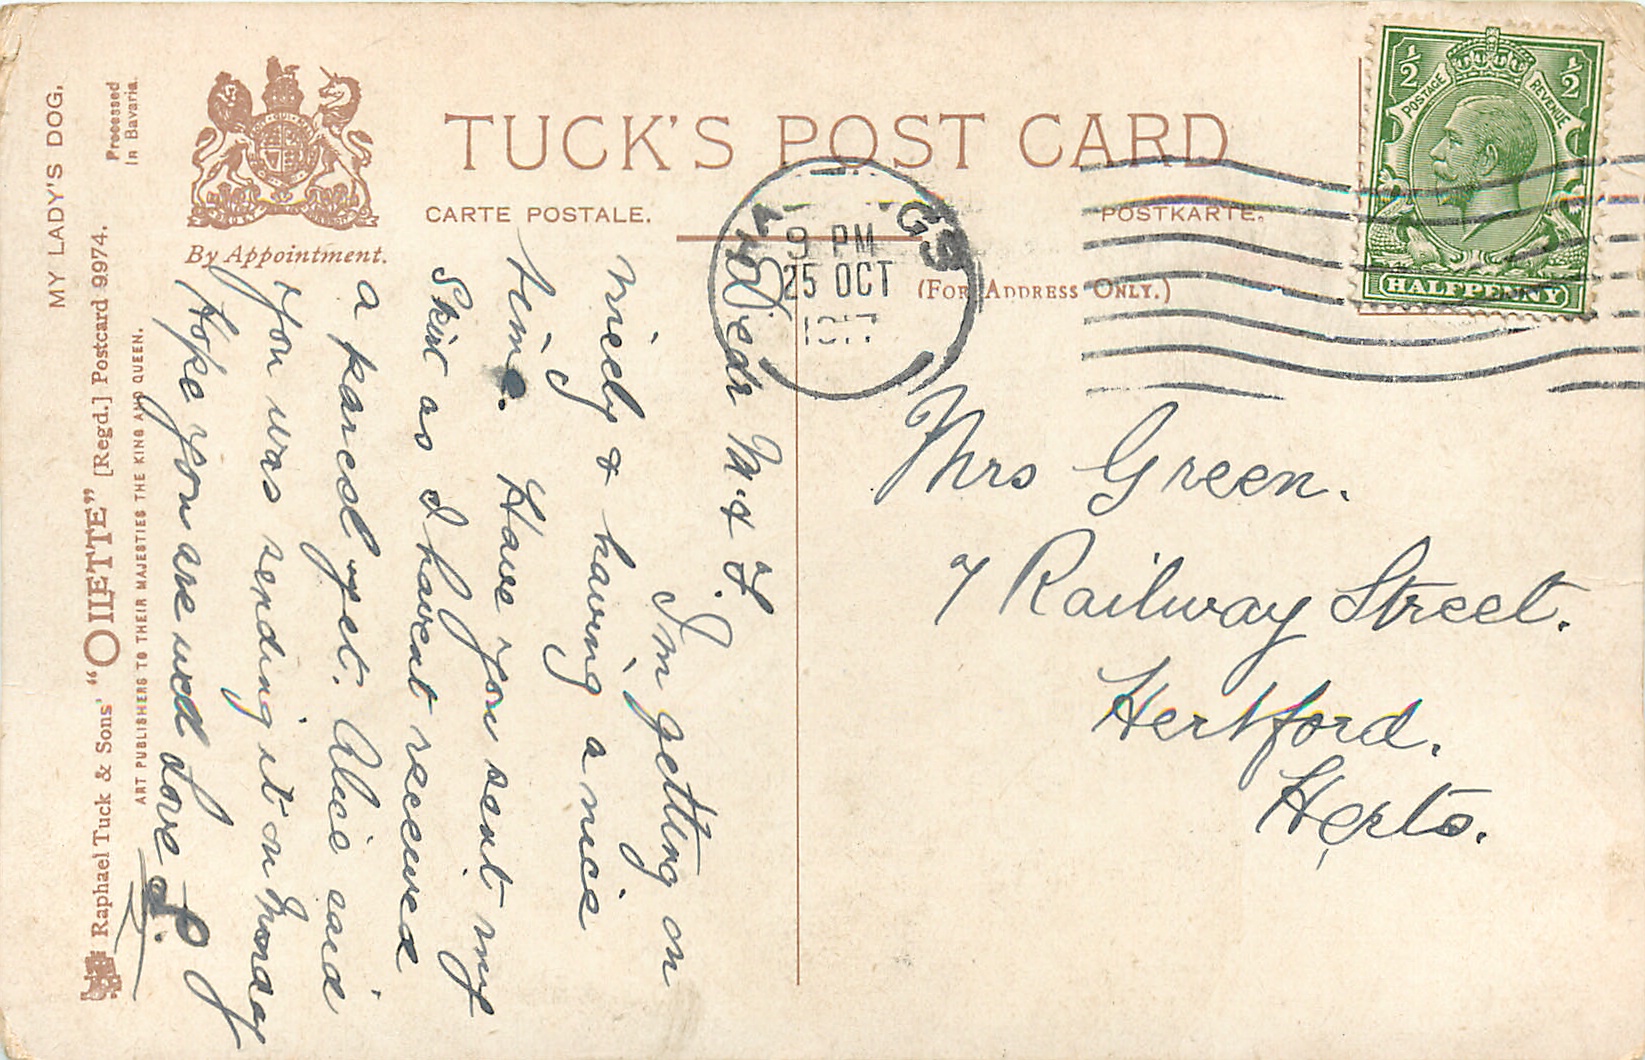 MY LADY'S DOG.
Processed
In Bavaria.
By Appointment.
Raphael Tuck & Sons' "OILETTE" [Regd.] Postcard 9974.
ART PUBLISHERS TO THEIR MAJESTIES THE KING AND QUEEN.
TUCK'S POST CARD
CARTE POSTALE.
POSTKARTE.
(FOR ADDRESS ONLY.)
1/2
1/2
POSTAGE
REVENUE
HALFPENNY
HA GS
9 PM
25 OCT
1917
Dear M. & F.
I'm getting on
nicely & having a nice
time. Have you sent my
Skirt as I havent received
a parcel yet. Alice said
you was sending it on Monday
Hope you are well Love
Mrs Green.
7 Railway Street.
Hertford.
Herts.